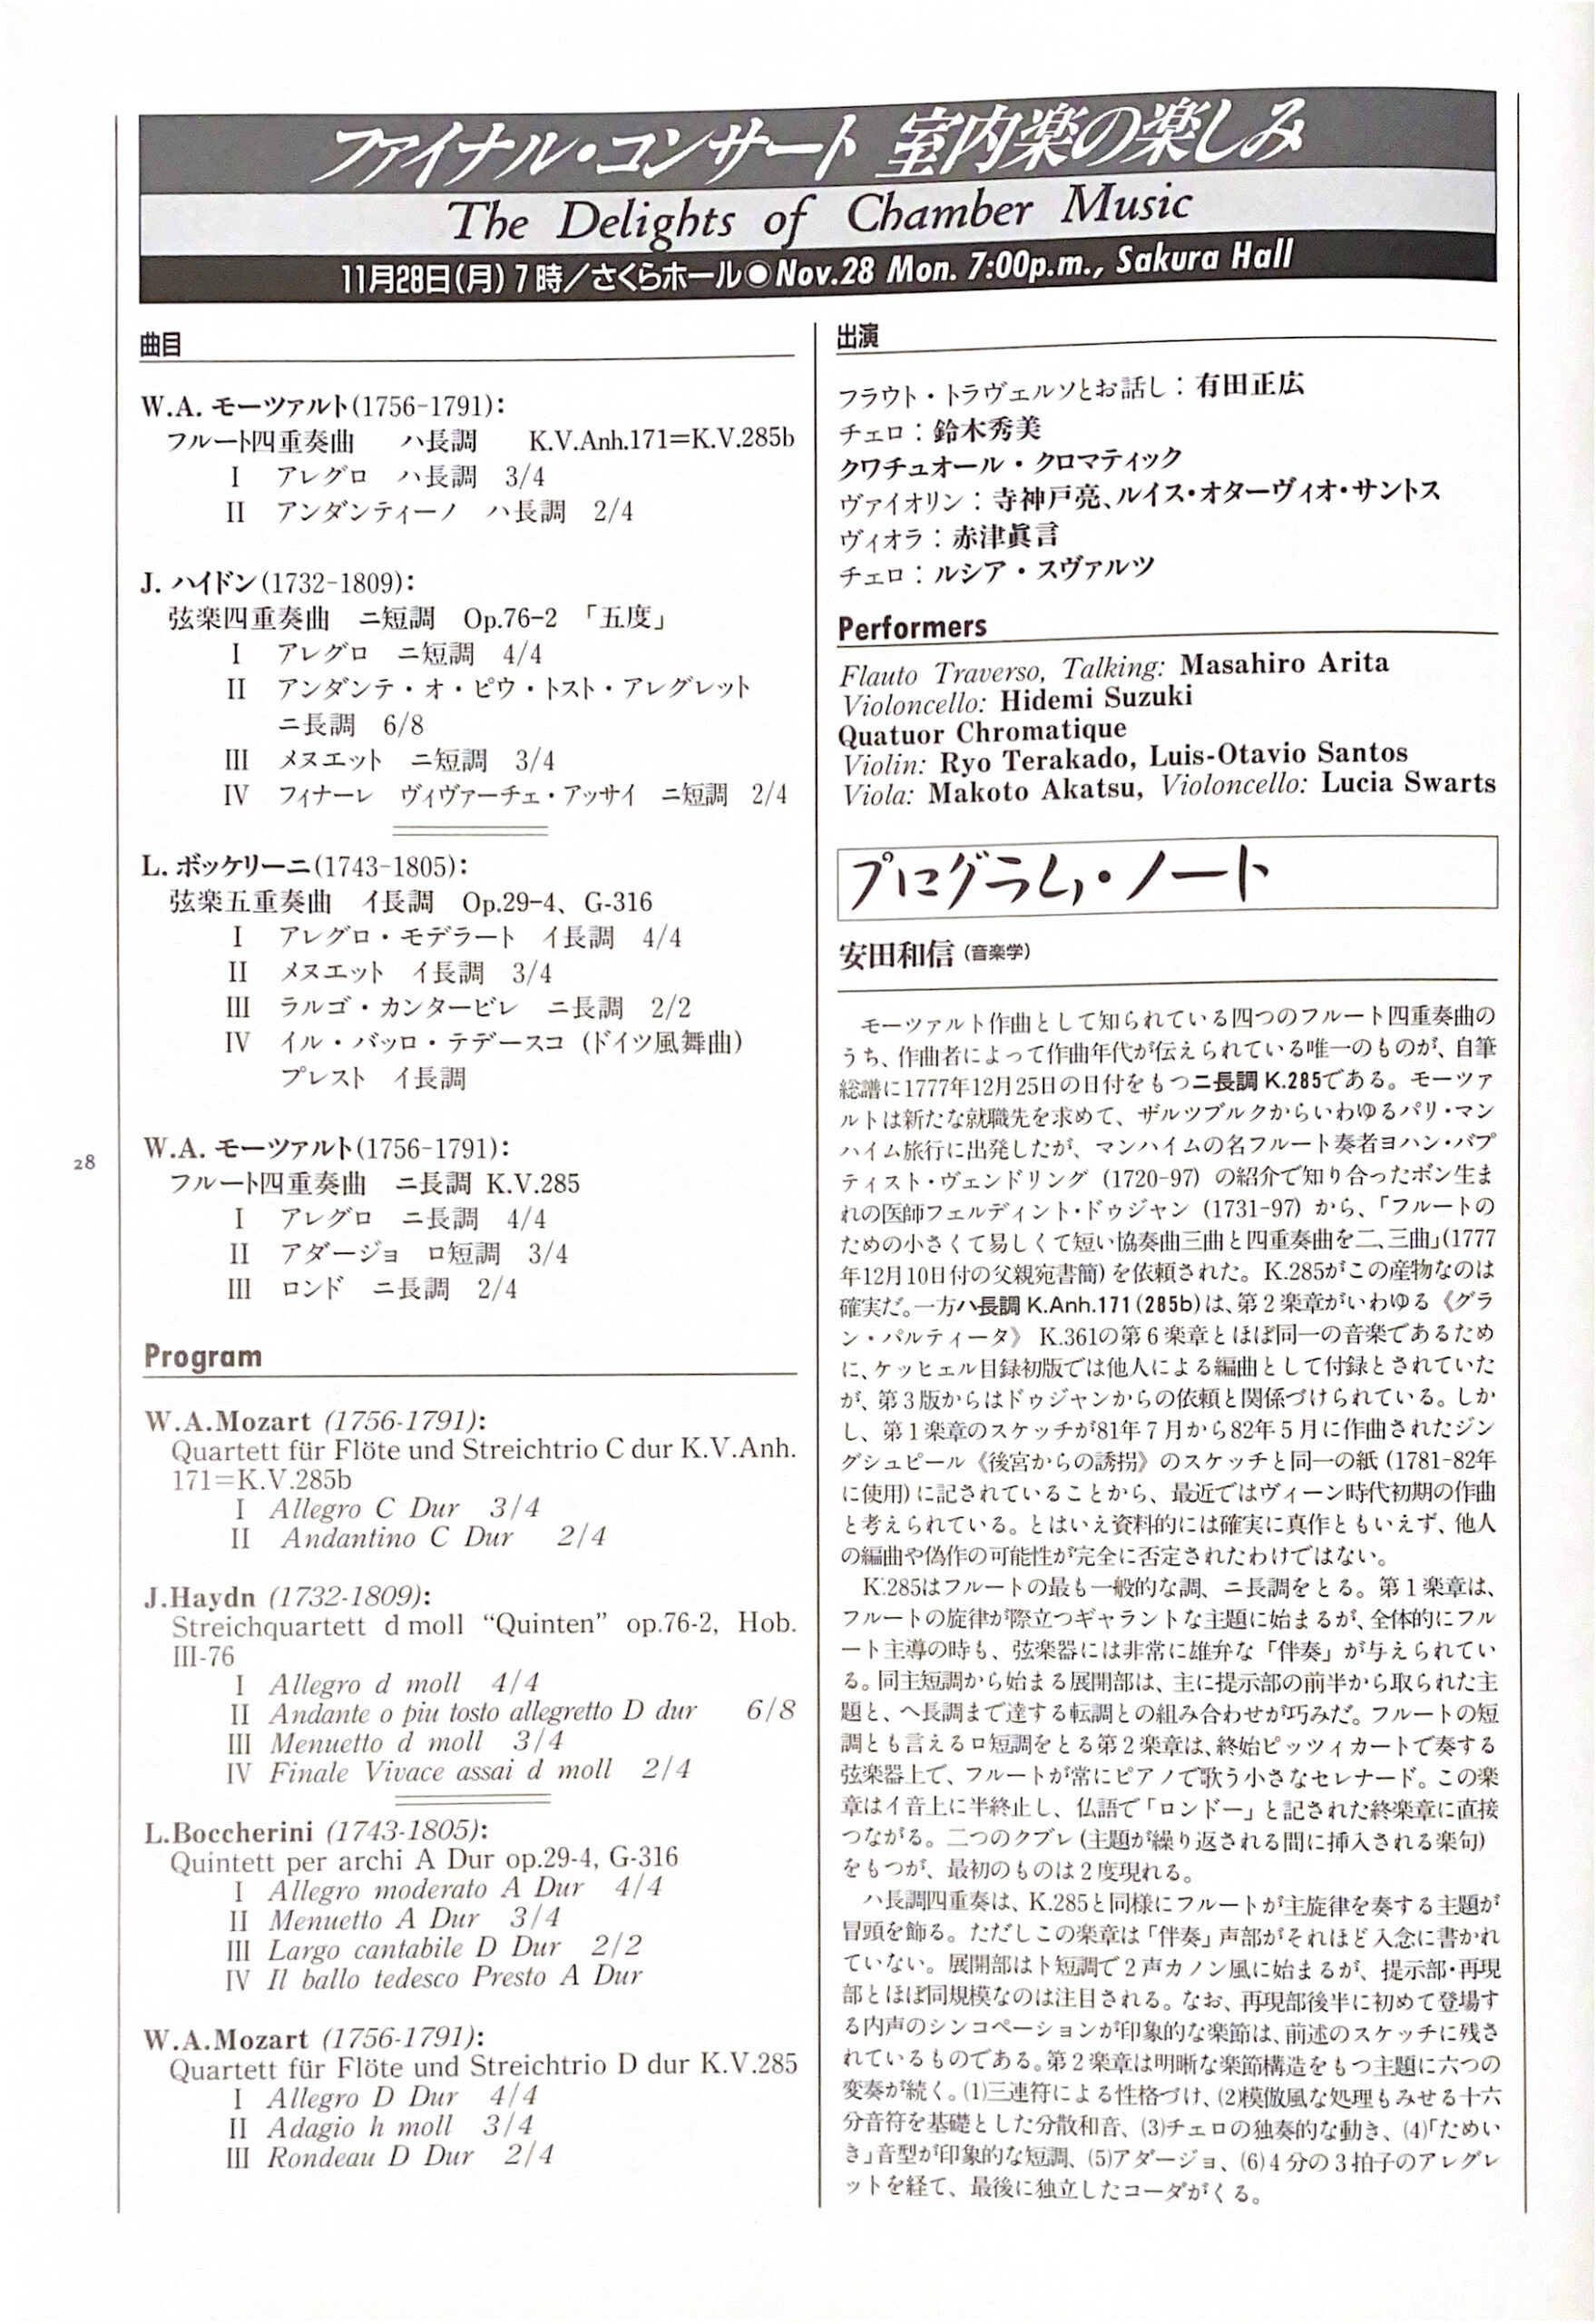 ファイナル・コンサート 室内楽の楽しみ
The Delights of Chamber Music
11月28日(月)7時／さくらホール◉Nov.28 Mon. 7:00p.m., Sakura Hall
曲目
W.A. モーツァルト(1756-1791)：
フルート四重奏曲　ハ長調　K.V.Anh.171=K.V.285b
I　アレグロ　ハ長調　3/4
II　アンダンティーノ　ハ長調　2/4
J. ハイドン(1732-1809)：
弦楽四重奏曲　ニ短調　Op.76-2　「五度」
I　アレグロ　ニ短調　4/4
II　アンダンテ・オ・ピウ・トスト・アレグレット
ニ長調　6/8
III　メヌエット　ニ短調　3/4
IV　フィナーレ　ヴィヴァーチェ・アッサイ　ニ短調　2/4
L. ボッケリーニ(1743-1805)：
弦楽五重奏曲　イ長調　Op.29-4、G-316
I　アレグロ・モデラート　イ長調　4/4
II　メヌエット　イ長調　3/4
III　ラルゴ・カンタービレ　ニ長調　2/2
IV　イル・バッロ・テデースコ（ドイツ風舞曲）
プレスト　イ長調
W.A. モーツァルト(1756-1791)：
フルート四重奏曲　ニ長調 K.V.285
I　アレグロ　ニ長調　4/4
II　アダージョ　ロ短調　3/4
III　ロンド　ニ長調　2/4
Program
W.A.Mozart (1756-1791):
Quartett für Flöte und Streichtrio C dur K.V.Anh.
171=K.V.285b
I Allegro C Dur 3/4
II Andantino C Dur 2/4
J.Haydn (1732-1809):
Streichquartett d moll “Quinten” op.76-2, Hob.
III-76
I Allegro d moll 4/4
II Andante o piu tosto allegretto D dur 6/8
III Menuetto d moll 3/4
IV Finale Vivace assai d moll 2/4
L.Boccherini (1743-1805):
Quintett per archi A Dur op.29-4, G-316
I Allegro moderato A Dur 4/4
II Menuetto A Dur 3/4
III Largo cantabile D Dur 2/2
IV Il ballo tedesco Presto A Dur
W.A.Mozart (1756-1791):
Quartett für Flöte und Streichtrio D dur K.V.285
I Allegro D Dur 4/4
II Adagio h moll 3/4
III Rondeau D Dur 2/4
28
出演
フラウト・トラヴェルソとお話し：有田正広
チェロ：鈴木秀美
クワチュオール・クロマティック
ヴァイオリン：寺神戸亮、ルイス・オターヴィオ・サントス
ヴィオラ：赤津眞言
チェロ：ルシア・スヴァルツ
Performers
Flauto Traverso, Talking: Masahiro Arita
Violoncello: Hidemi Suzuki
Quatuor Chromatique
Violin: Ryo Terakado, Luis-Otavio Santos
Viola: Makoto Akatsu, Violoncello: Lucia Swarts
プログラム・ノート
安田和信（音楽学）
モーツァルト作曲として知られている四つのフルート四重奏曲の
うち、作曲者によって作曲年代が伝えられている唯一のものが、自筆
総譜に1777年12月25日の日付をもつニ長調 K.285である。モーツァ
ルトは新たな就職先を求めて、ザルツブルクからいわゆるパリ・マン
ハイム旅行に出発したが、マンハイムの名フルート奏者ヨハン・バプ
ティスト・ヴェンドリング（1720-97）の紹介で知り合ったボン生ま
れの医師フェルディント・ドゥジャン（1731-97）から、「フルートの
ための小さくて易しくて短い協奏曲三曲と四重奏曲を二、三曲」(1777
年12月10日付の父親宛書簡) を依頼された。K.285がこの産物なのは
確実だ。一方ハ長調 K.Anh.171(285b)は、第２楽章がいわゆる《グラ
ン・パルティータ》 K.361の第６楽章とほぼ同一の音楽であるため
に、ケッヒェル目録初版では他人による編曲として付録とされていた
が、第３版からはドゥジャンからの依頼と関係づけられている。しか
し、第１楽章のスケッチが81年７月から82年５月に作曲されたジン
グシュピール《後宮からの誘拐》のスケッチと同一の紙 (1781-82年
に使用) に記されていることから、最近ではヴィーン時代初期の作曲
と考えられている。とはいえ資料的には確実に真作ともいえず、他人
の編曲や偽作の可能性が完全に否定されたわけではない。
K.285はフルートの最も一般的な調、ニ長調をとる。第１楽章は、
フルートの旋律が際立つギャラントな主題に始まるが、全体的にフル
ート主導の時も、弦楽器には非常に雄弁な「伴奏」が与えられてい
る。同主短調から始まる展開部は、主に提示部の前半から取られた主
題と、ヘ長調まで達する転調との組み合わせが巧みだ。フルートの短
調とも言えるロ短調をとる第２楽章は、終始ピッツィカートで奏する
弦楽器上で、フルートが常にピアノで歌う小さなセレナード。この楽
章はイ音上に半終止し、仏語で「ロンドー」と記された終楽章に直接
つながる。二つのクプレ (主題が繰り返される間に挿入される楽句)
をもつが、最初のものは２度現れる。
ハ長調四重奏は、K.285と同様にフルートが主旋律を奏する主題が
冒頭を飾る。ただしこの楽章は「伴奏」声部がそれほど入念に書かれ
ていない。展開部はト短調で２声カノン風に始まるが、提示部・再現
部とほぼ同規模なのは注目される。なお、再現部後半に初めて登場す
る内声のシンコペーションが印象的な楽節は、前述のスケッチに残さ
れているものである。第２楽章は明晰な楽節構造をもつ主題に六つの
変奏が続く。(1)三連符による性格づけ、(2)模倣風な処理もみせる十六
分音符を基礎とした分散和音、(3)チェロの独奏的な動き、(4)「ためい
き」音型が印象的な短調、(5)アダージョ、(6)４分の３拍子のアレグレ
ットを経て、最後に独立したコーダがくる。